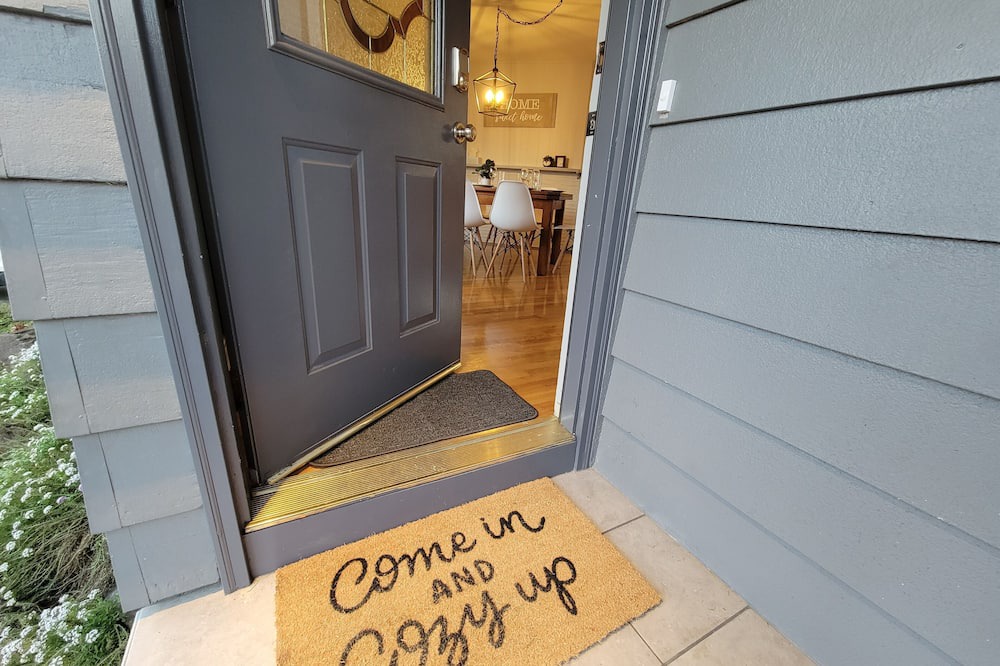 HOME
sweet home
Come in
AND
Cozy up